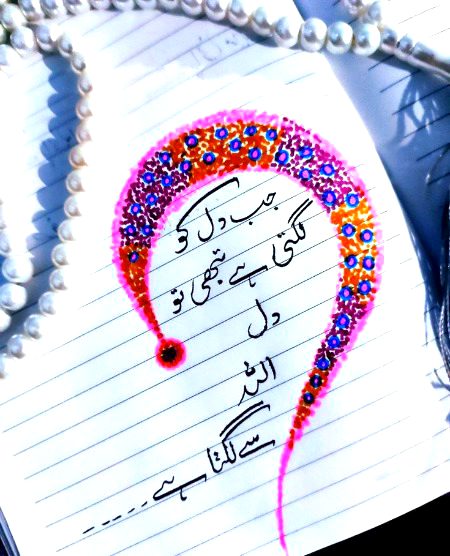 جب دل کو
لگتی ہے تبھی تو
دل
اللہ
سے لگتا ہے-----